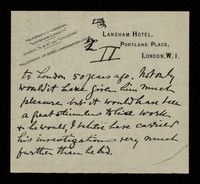 II
LANGHAM HOTEL,
PORTLAND PLACE,
LONDON, W.1.
to London 50 years ago. Not only
would it have given him much
pleasure, but it would have been
a great stimulus to his work
& he would, I believe have carried
his investigations very much
further than he did.